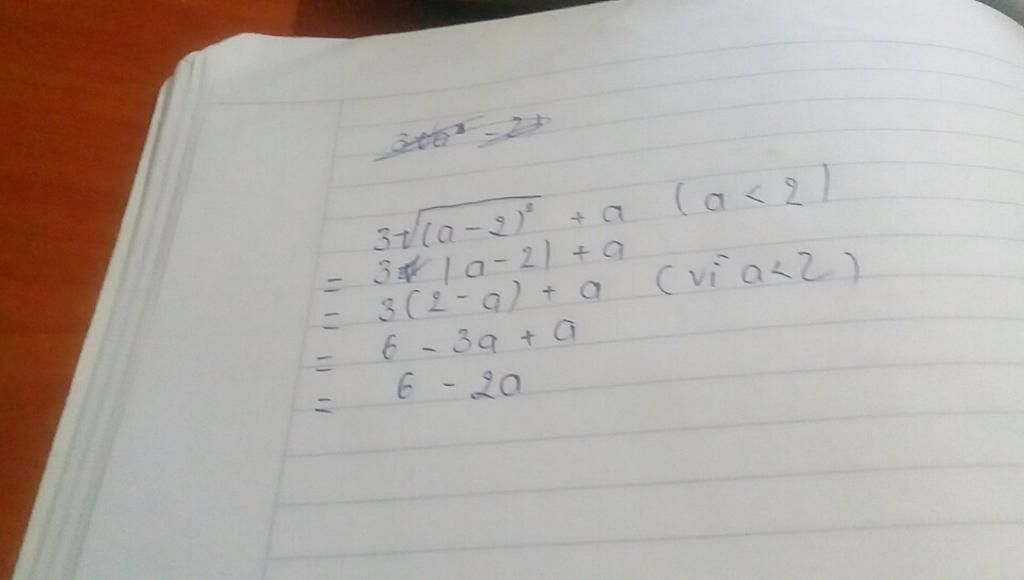 3√(a-2)² + a (a < 2)
= 3 |a-2| + a
= 3(2-a) + a (vì a<2)
= 6 - 3a + a
= 6 - 2a